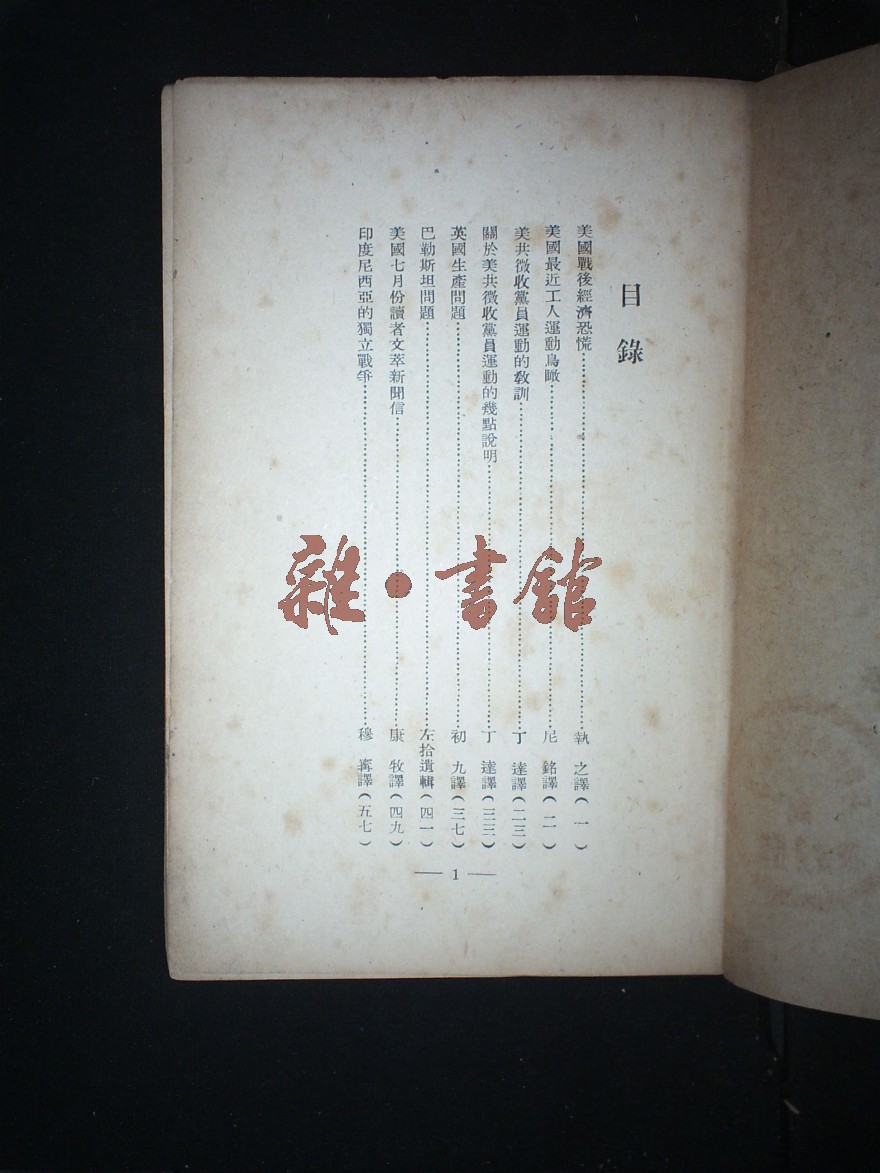 目錄
美國戰後經濟恐慌……執之譯(一)
美國最近工人運動鳥瞰……尼銘譯(一一)
美共徵收黨員運動的敎訓……丁達譯(二三)
關於美共徵收黨員運動的幾點說明……丁達譯(三三)
英國生產問題……初九譯(三七)
巴勒斯坦問題……左拾遺輯(四一)
美國七月份讀者文萃新聞信……康牧譯(四九)
印度尼西亞的獨立戰爭……穆寗譯(五七)
— 1 —
雜·書館